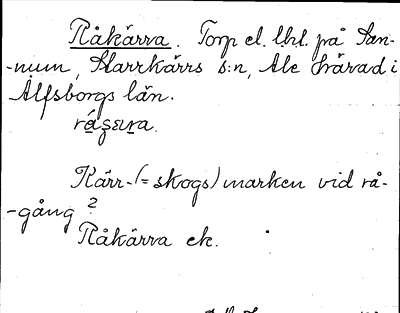 Råkärra. Torp el. lht. på San-
-num, Starrkärrs s:n, Ale härad i
Älfsborgs län.

Kärr-(= skogs)marken vid rå-
-gång?
Råkärra ek.